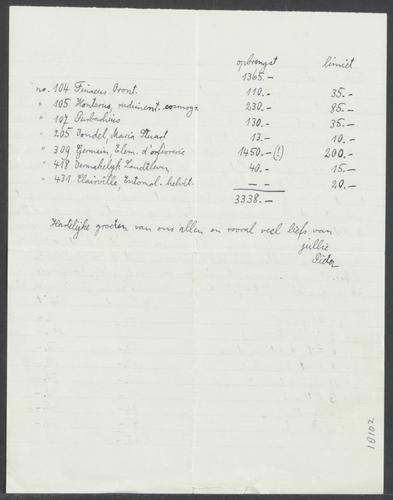 opbrengst limiet
1365.-
no. 104 Finaeus Oront. 110.- 35.-
" 105 Honterus, rudiment. cosmogr. 230.- 85.-
" 107 Purbachius 130.- 35.-
" 205 Vondel, Maria Stuart 13.- 10.-
" 309 Germain, Elem. d'orfèvrerie 1450.- (!) 200.-
" 488 Vermakelyk Landtleven 40.- 15.-
" 431 Clairville, Entomol. helvét. - - 20.-
3338.-
Hartelijke groeten van ons allen en vooral veel liefs van
jullie
Pieter
18102